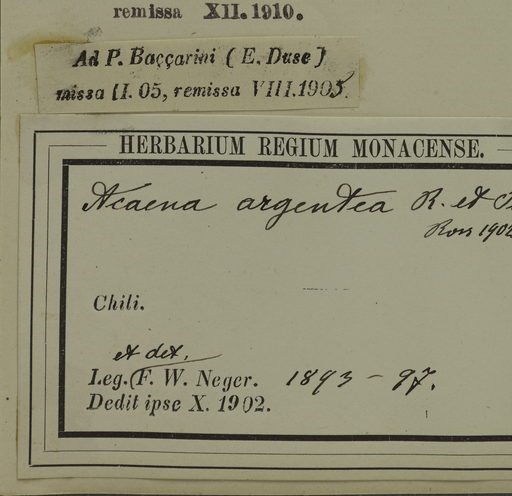 remissa XII.1910.
Ad P. Baççarini ( E. Duse )
missa II. 05, remissa VIII.1905.
HERBARIUM REGIUM MONACENSE.
Acaena argentea R. et
Ross 1902
Chili.
et det.
Leg. (F. W. Neger. 1893 – 97.
Dedit ipse X. 1902.